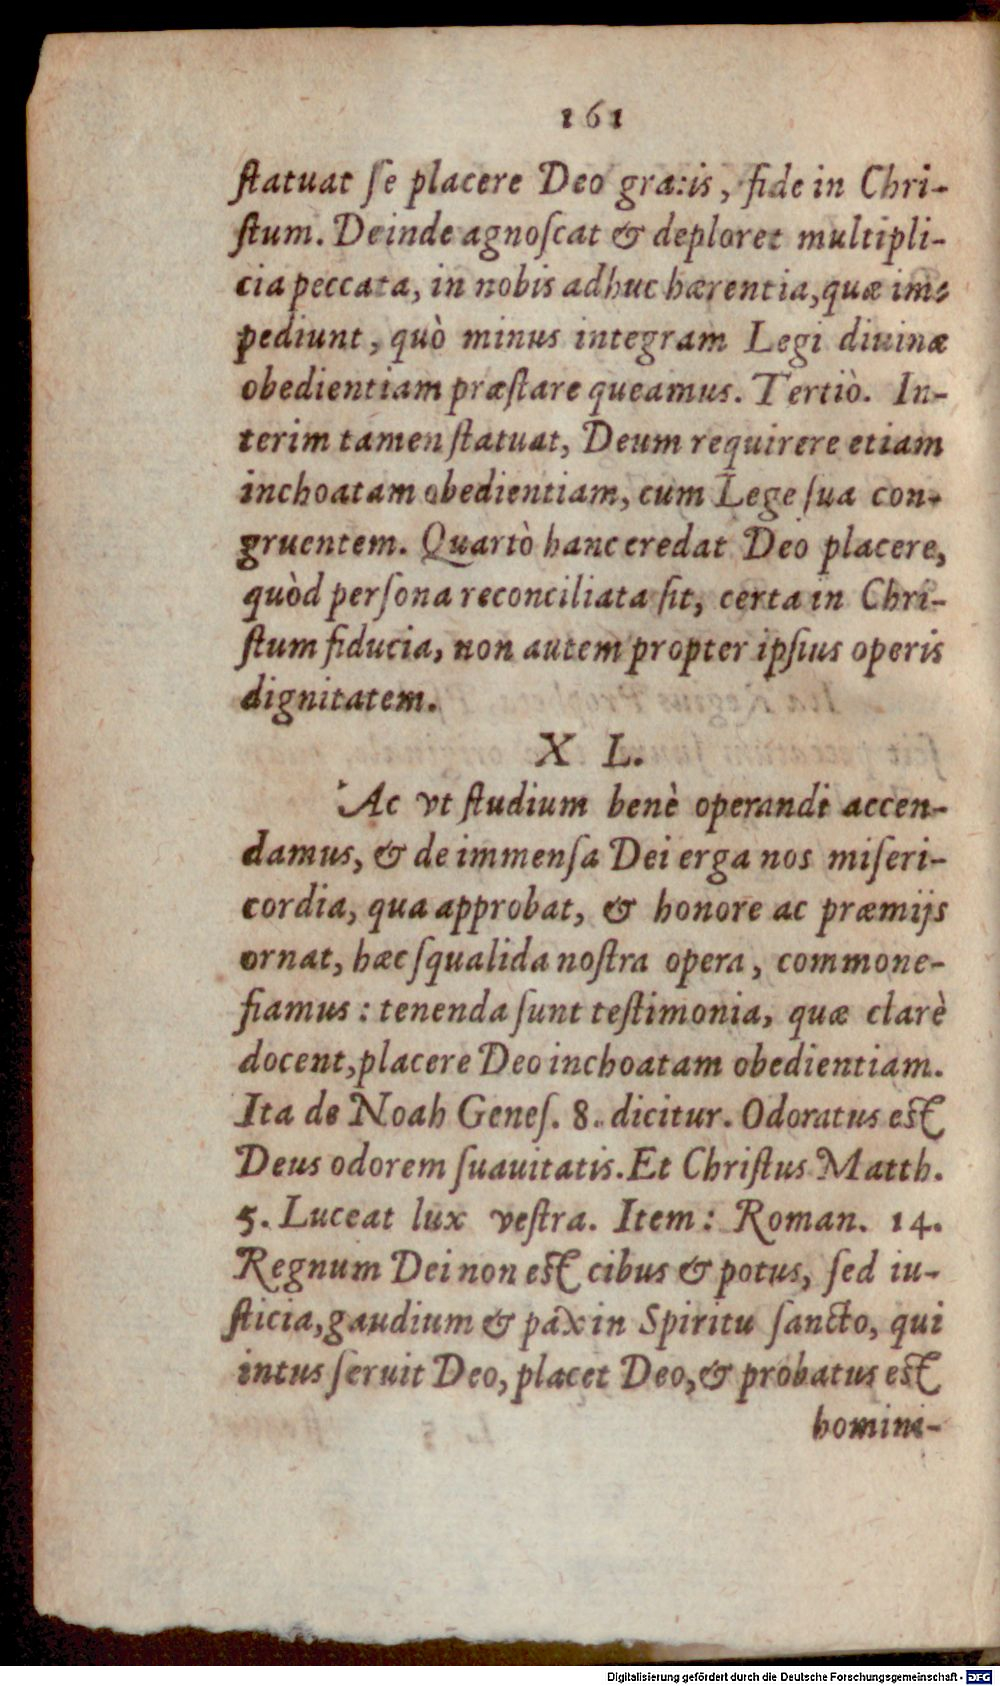 161
ſtatuat ſe placere Deo gratis, fide in Chri-
ſtum. Deinde agnoſcat & deploret multipli-
cia peccata, in nobis adhuc hærentia, quæ im-
pediunt, quò minus integram Legi diuinæ
obedientiam præſtare queamus. Tertiò. In-
terim tamen ſtatuat, Deum requirere etiam
inchoatam obedientiam, cum Lege ſua con-
gruentem. Quartò hanc credat Deo placere,
quòd perſona reconciliata ſit, certa in Chri-
ſtum fiducia, non autem propter ipſius operis
dignitatem.
X L.
Ac vt ſtudium benè operandi accen-
damus, & de immenſa Dei erga nos miſeri-
cordia, qua approbat, & honore ac præmijs
ornat, hæc ſqualida noſtra opera, commone-
fiamus: tenenda ſunt teſtimonia, quæ clarè
docent, placere Deo inchoatam obedientiam.
Ita de Noah Geneſ. 8. dicitur. Odoratus eſt
Deus odorem ſuauitatis. Et Chriſtus Matth.
5. Luceat lux veſtra. Item: Roman. 14.
Regnum Dei non eſt cibus & potus, ſed iu-
ſticia, gaudium & pax in Spiritu ſancto, qui
intus ſeruit Deo, placet Deo, & probatus eſt
homini-
Digitalisierung gefördert durch die Deutsche Forschungsgemeinschaft - DFG